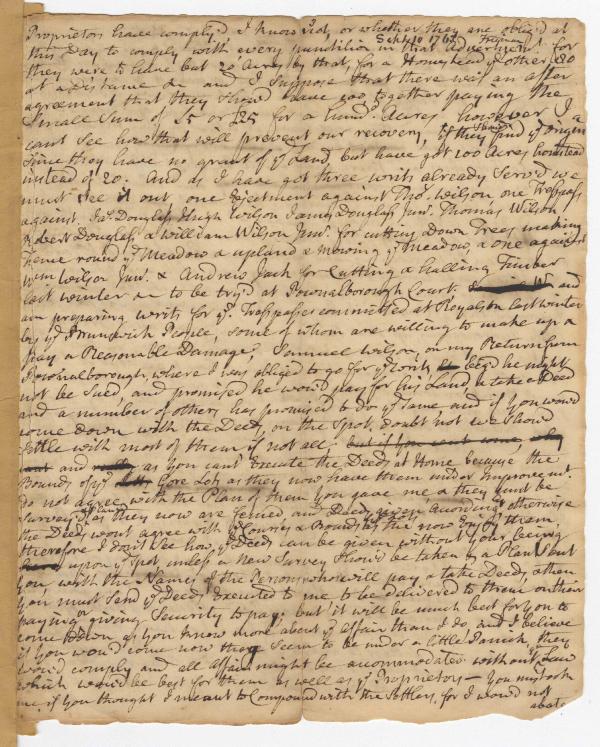 Proprietors have comply'd I know not, or whether they are oblig'd at
this Day to comply with every condition in that Advertisment, for
Sept. 10 1762
they were to have but 20 Acres by that, for a Homestead & other 80
at a Distance &c and I suppose that there was an after
agreement that they Should have 100 together paying the
Small Sum of £5 or £25 for a hund. Acres however I
cant See how that will prevent our recovery, of
Since they have no grant of ye Land, but have got 100 Acres homestead
instead of 20. And as I have got three writs already Serv'd we
must See it out one Ejectment against Tho. Wilson, one Trespass
against Ja.s Douglass Hugh Wilson James Douglass Jun.r Thomas Wilson
Robert Douglass & William Wilson Jun.r for cutting Down Trees making
Fence round ye Meadow & upland & mowing ye Meadow, & one against
Wm Wilson Jun.r & Andrew Jack for Cutting & halling Timber
last winter &c to be try'd at Pownalborough Court. and
am preparing writs for ye Trespasses committed at Royalston last winter
by ye Brunswick People, some of whom are willing to make up &
pay a Reasonable Damage, Samuel Wilson, on my Return from
Pownalborough, where I was obliged to go for ye writs, beg'd he might
not be Sued, and promised he wou'd pay for his Land, & take a Deed
and a number of others has promised to do ye same and if you wou'd
come down with the Deeds, on the Spot, doubt not we Shou'd
Settle with most of them if not all. but if you cant come,
and as you cant Execute the Deeds at Home because the
Bounds of ye Gore Lots as they now have them under Improvement
do not agree with the Plan of them you gave me & they must be
Survey'd as they now are fenced, and Deeds given according otherwise
the Deeds wont agree with ye Courses & Bounds
therefore I Don't See how ye Deeds can be given without your being
upon ye Spot unless a New Survey Shou'd be taken & a Plan Sent
you with the Names of the Persons who will pay & take Deeds, & then
you must Send ye Deeds Executed to me to be delivered to them on their
paying or giving Security to pay; but it will be much best for you to
come Down as you know more about ye affair than I do and I believe
if you wou'd come now they Seem to be under a little Panick, they
wou'd comply and all affairs might be accommodated without ye Law
which wou'd be best for them as well as ye Proprietors — You mistook
me, if you thought I meant to Compound with the Settlers, for I wou'd not
abate